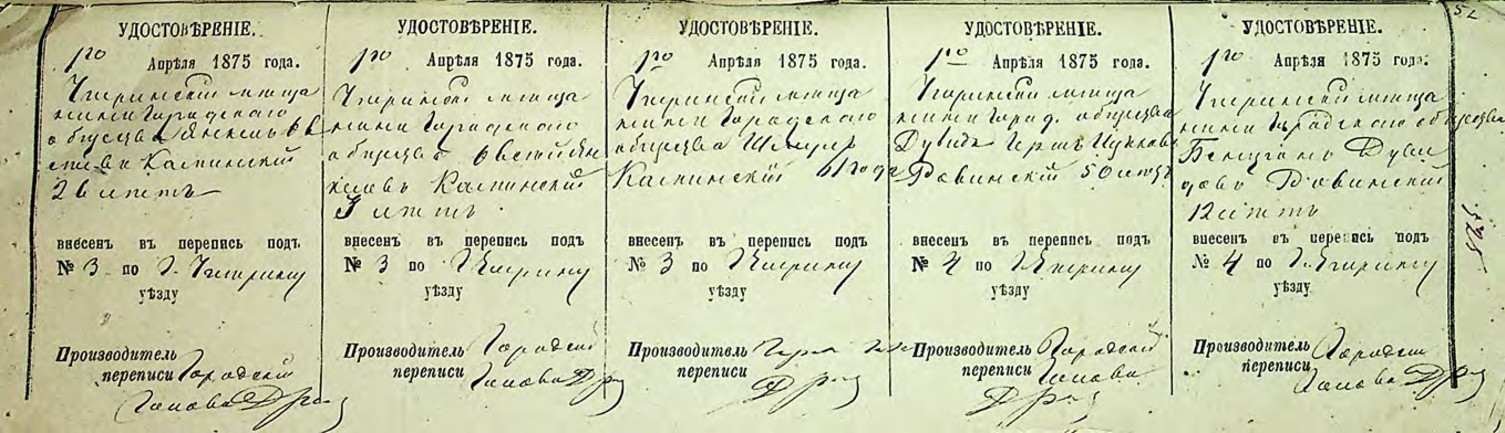 52
УДОСТОВѢРЕНІЕ.
1го Апрѣля 1875 года.
Чигиринскій мѣща
нинъ Городского
общества
Каминскій
26 лѣтъ
внесенъ въ перепись подъ
№ 3 по г. Чигирину
уѣзду
Производитель
переписи Городской
Голова
УДОСТОВѢРЕНІЕ.
1го Апрѣля 1875 года.
Чигиринскій мѣща
нинъ Городского
общества
Каминскій
лѣтъ
внесенъ въ перепись подъ
№ 3 по г Чигирину
уѣзду
Производитель Городской
переписи Голова
УДОСТОВѢРЕНІЕ.
1го Апрѣля 1875 года.
Чигиринскій мѣща
нинъ Городского
общества
Каминскій 61 года
внесенъ въ перепись подъ
№ 3 по г Чигирину
уѣзду
Производитель
переписи
УДОСТОВѢРЕНІЕ.
1го Апрѣля 1875 года.
Чигиринскій мѣща
нинъ Город. общества
Дувидъ Гершъ
50 лѣтъ
внесенъ въ перепись подъ
№ 4 по г Чигирину
уѣзду
Производитель Городской
переписи Голова
УДОСТОВѢРЕНІЕ.
1го Апрѣля 1875 года.
Чигиринскій мѣща
нинъ Городского общества
Бенціонъ Дуви
довъ
12 лѣтъ
внесенъ въ перепись подъ
№ 4 по г. Чигирину
уѣзду
Производитель Городской
переписи Голова